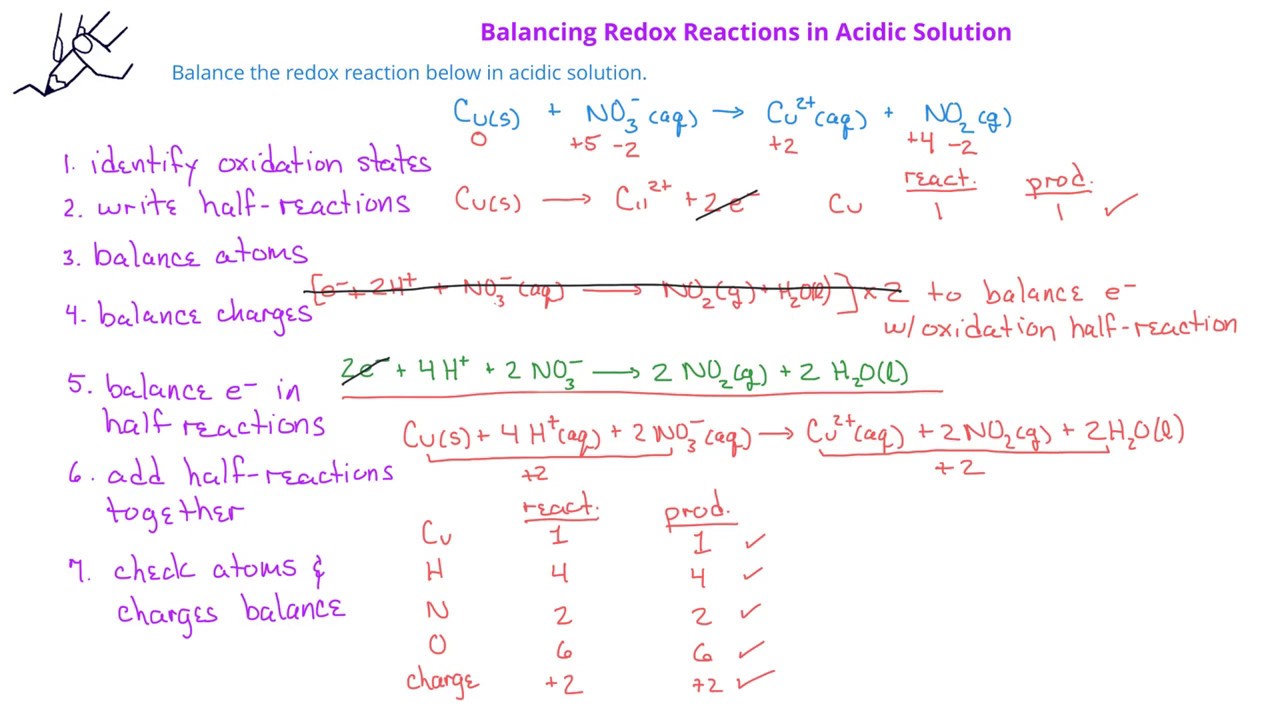 Balancing Redox Reactions in Acidic Solution
Balance the redox reaction below in acidic solution.
Cu(s) + NO₃⁻(aq) → Cu²⁺(aq) + NO₂(g)
0 +5 -2 +2 +4 -2
1. identify oxidation states
react. prod.
2. write half-reactions
Cu(s) → Cu²⁺ + 2e⁻ Cu 1 1 ✓
3. balance atoms
[e⁻ + 2H⁺ + NO₃⁻(aq) → NO₂(g) + H₂O(l)] × 2 to balance e⁻
4. balance charges
w/oxidation half-reaction
2e⁻ + 4H⁺ + 2 NO₃⁻ → 2 NO₂(g) + 2 H₂O(l)
5. balance e⁻ in
half reactions
Cu(s) + 4 H⁺(aq) + 2 NO₃⁻(aq) → Cu²⁺(aq) + 2NO₂(g) + 2H₂O(l)
+2 +2
6. add half-reactions
together
react. prod.
Cu 1 1 ✓
7. check atoms &
charges balance
H 4 4 ✓
N 2 2 ✓
O 6 6 ✓
charge +2 +2 ✓